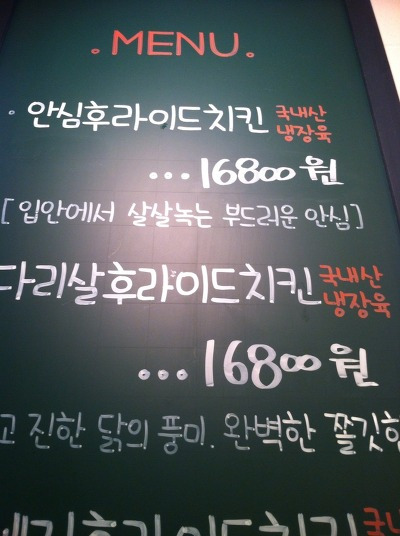 . MENU .
안심후라이드치킨 국내산 냉장육
...16800원
[입안에서 살살녹는 부드러운 안심]
다리살후라이드치킨 국내산 냉장육
...16800원
고 진한 닭의 풍미. 완벽한 쫄깃한